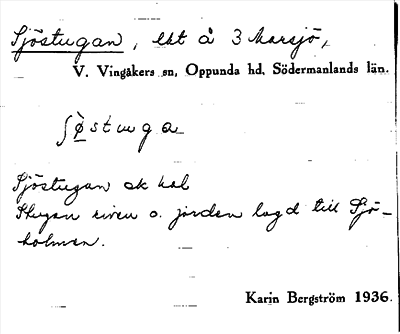 Sjöstugan, lht å 3 Marsjö,
V. Vingåkers sn, Oppunda hd, Södermanlands län.
ʃø̀stuga
Sjöstugan ek hal
Stugan riven o. jorden lagd till Sjö-
holmen.
Karin Bergström 1936.